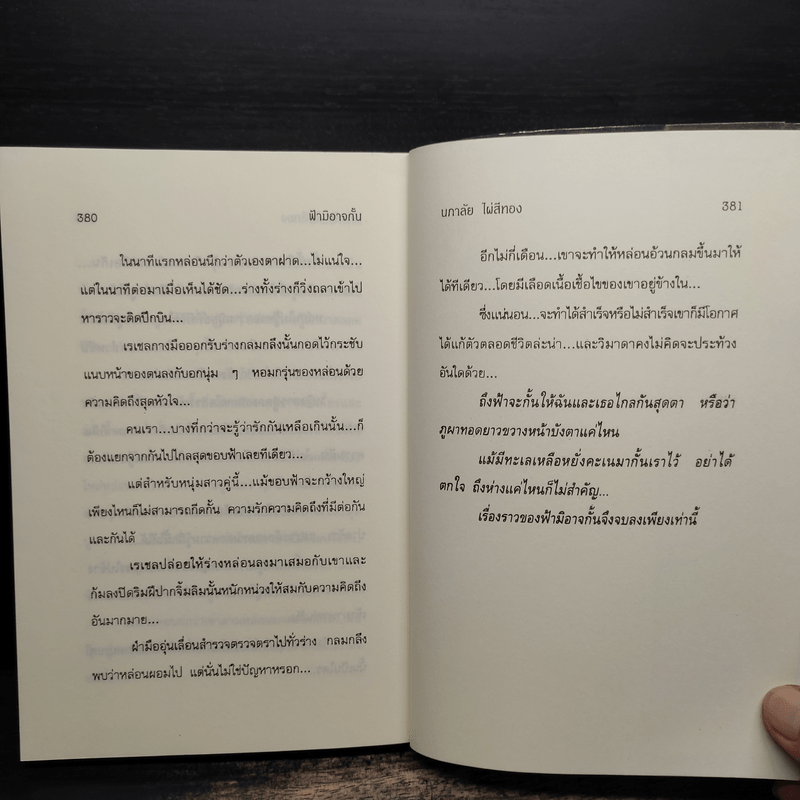 380
ฟ้ามิอาจกั้น
ในนาทีแรกหล่อนนึกว่าตัวเองตาฝาด...ไม่แน่ใจ...
แต่ในนาทีต่อมาเมื่อเห็นได้ชัด...ร่างทั้งร่างก็วิ่งถลาเข้าไป
หาราวจะติดปีกบิน...
เรเชลกางมือออกรับร่างกลมกลึงนั้นกอดไว้กระชับ
แนบหน้าของตนลงกับอกนุ่ม ๆ หอมกรุ่นของหล่อนด้วย
ความคิดถึงสุดหัวใจ...
คนเรา...บางทีกว่าจะรู้ว่ารักกันเหลือเกินนั้น...ก็
ต้องแยกจากกันไปไกลสุดขอบฟ้าเลยทีเดียว...
แต่สำหรับหนุ่มสาวคู่นี้...แม้ขอบฟ้าจะกว้างใหญ่
เพียงไหนก็ไม่สามารถกีดกั้น ความรักความคิดถึงที่มีต่อกัน
และกันได้
เรเชลปล่อยให้ร่างหล่อนลงมาเสมอกับเขาและ
ก้มลงปิดริมฝีปากจิ้มลิมนั้นหนักหน่วงให้สมกับความคิดถึง
อันมากมาย...
ฝ่ามืออุ่นเลื่อนสำรวจตรวจตราไปทั่วร่าง กลมกลึง
พบว่าหล่อนผอมไป แต่นั่นไม่ใช่ปัญหาหรอก...
นภาลัย ไผ่สีทอง
381
อีกไม่กี่เดือน...เขาจะทำให้หล่อนอ้วนกลมขึ้นมาให้
ได้ทีเดียว...โดยมีเลือดเนื้อเชื้อไขของเขาอยู่ข้างใน...
ซึ่งแน่นอน...จะทำได้สำเร็จหรือไม่สำเร็จเขาก็มีโอกาศ
ได้แก้ตัวตลอดชีวิตล่ะน่า...และวิมาดาคงไม่คิดจะประท้วง
อันใดด้วย...
ถึงฟ้าจะกั้นให้ฉันและเธอไกลกันสุดตา หรือว่า
ภูผาทอดยาวขวางหน้าบังตาแค่ไหน
แม้มีทะเลเหลือหยั่งคะเนมากั้นเราไว้ อย่าได้
ตกใจ ถึงห่างแค่ไหนก็ไม่สำคัญ...
เรื่องราวของฟ้ามิอาจกั้นจึงจบลงเพียงเท่านี้